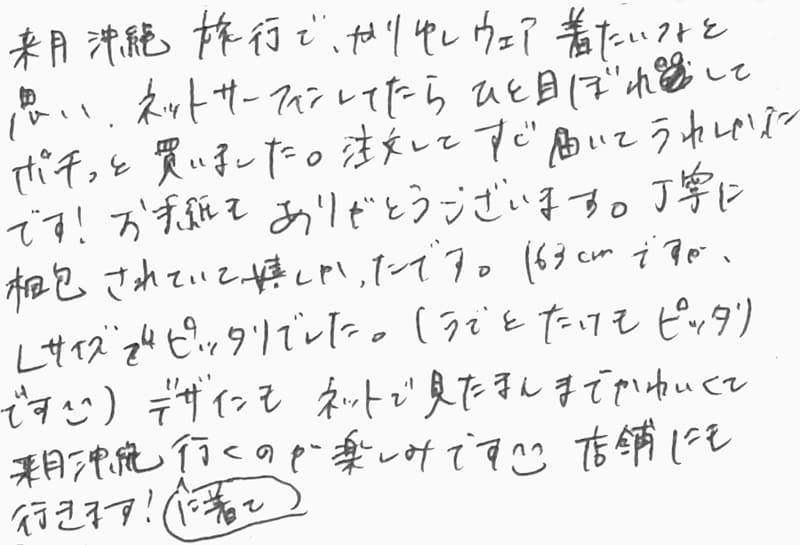 来月沖縄 旅行で、かりゆしウェア 着たいなと
思い、ネットサーフィンしてたら ひと目ぼれして
ポチっと 買いました。注文して すぐ 届いて うれしかった
です! お手紙も ありがとうございます。丁寧に
梱包 されていて 嬉しかったです。163cm ですが、
Lサイズで ピッタリでした。(うでとたけも ピッタリ
です) デザインも ネットで 見たまんまでかわいくて
来月沖縄 行くのが 楽しみです 店舗にも
行きます! に着て